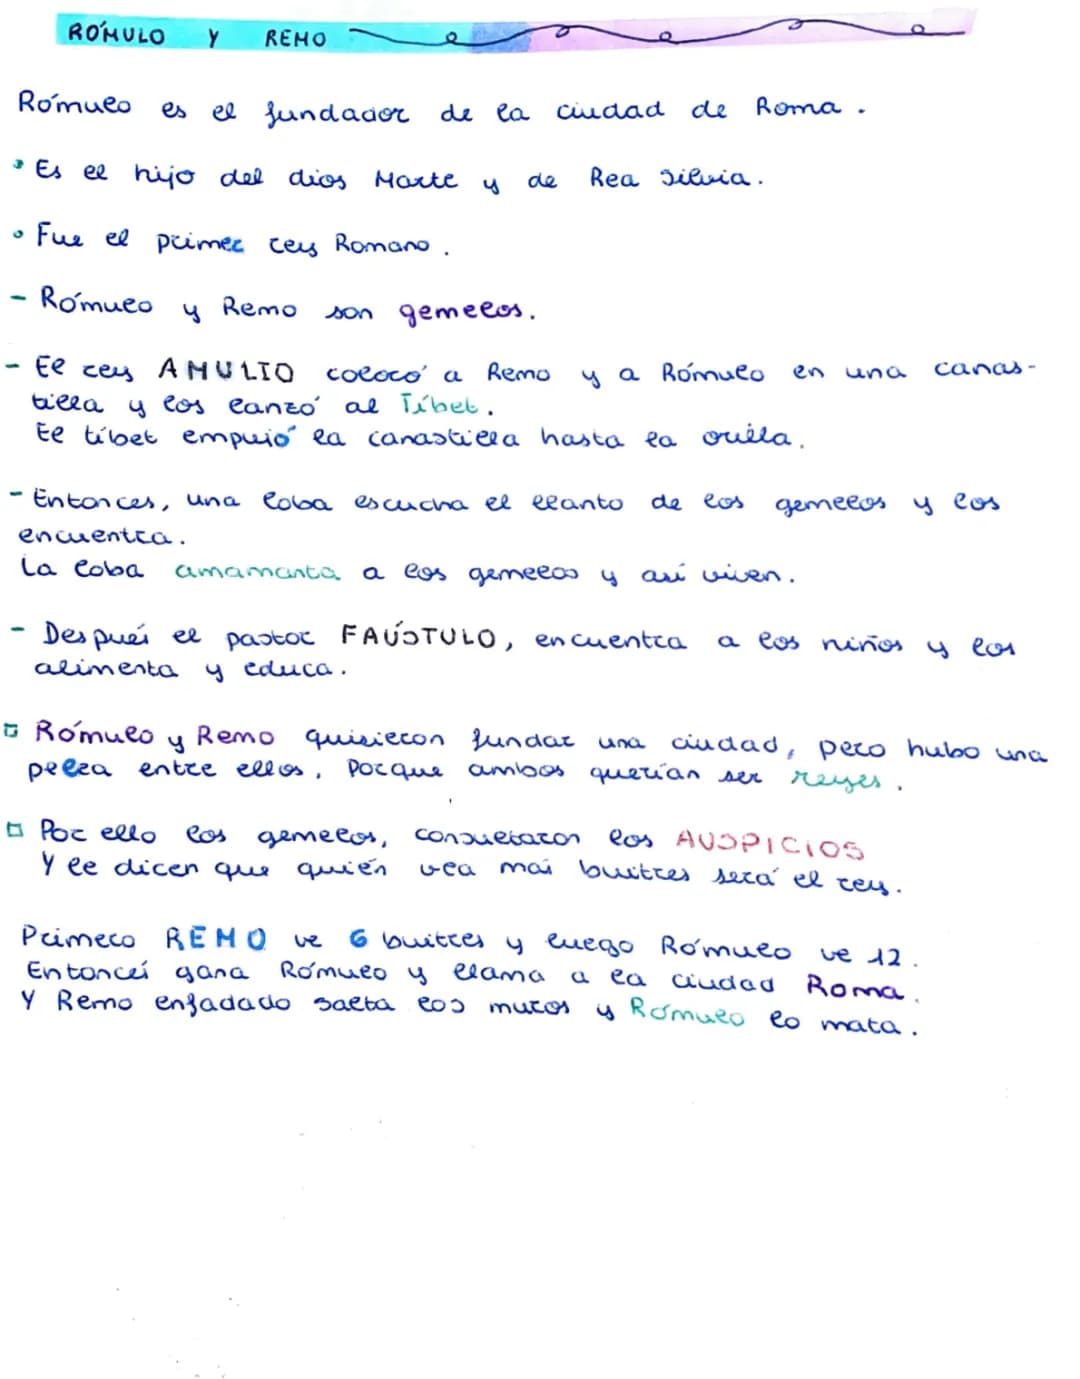 RÓMULO Y REMO
Rómulo es el fundador de la ciudad de Roma.
• Es el hijo del dios Marte y de Rea Silvia.
• Fue el primer rey Romano.
- Rómulo y Remo son gemelos.
- El rey AMULIO colocó a Remo y a Rómulo en una canas-
tilla y los lanzó al Tíber.
El tíber empujó la canastilla hasta la orilla.
- Entonces, una loba escucha el llanto de los gemelos y los
encuentra.
La loba amamanta a los gemelos y así viven.
- Después el pastor FAÚSTULO, encuentra a los niños y los
alimenta y educa.
□ Rómulo y Remo quisieron fundar una ciudad, pero hubo una
pelea entre ellos, Porque ambos querían ser reyes.
□ Por ello los gemelos, consultaron los AUSPICIOS
Y le dicen que quién vea más buitres será el rey.
Primero REMO ve 6 buitres y luego Rómulo ve 12.
Entoncés gana Rómulo y llama a la ciudad Roma.
Y Remo enfadado salta los muros y Rómulo lo mata.